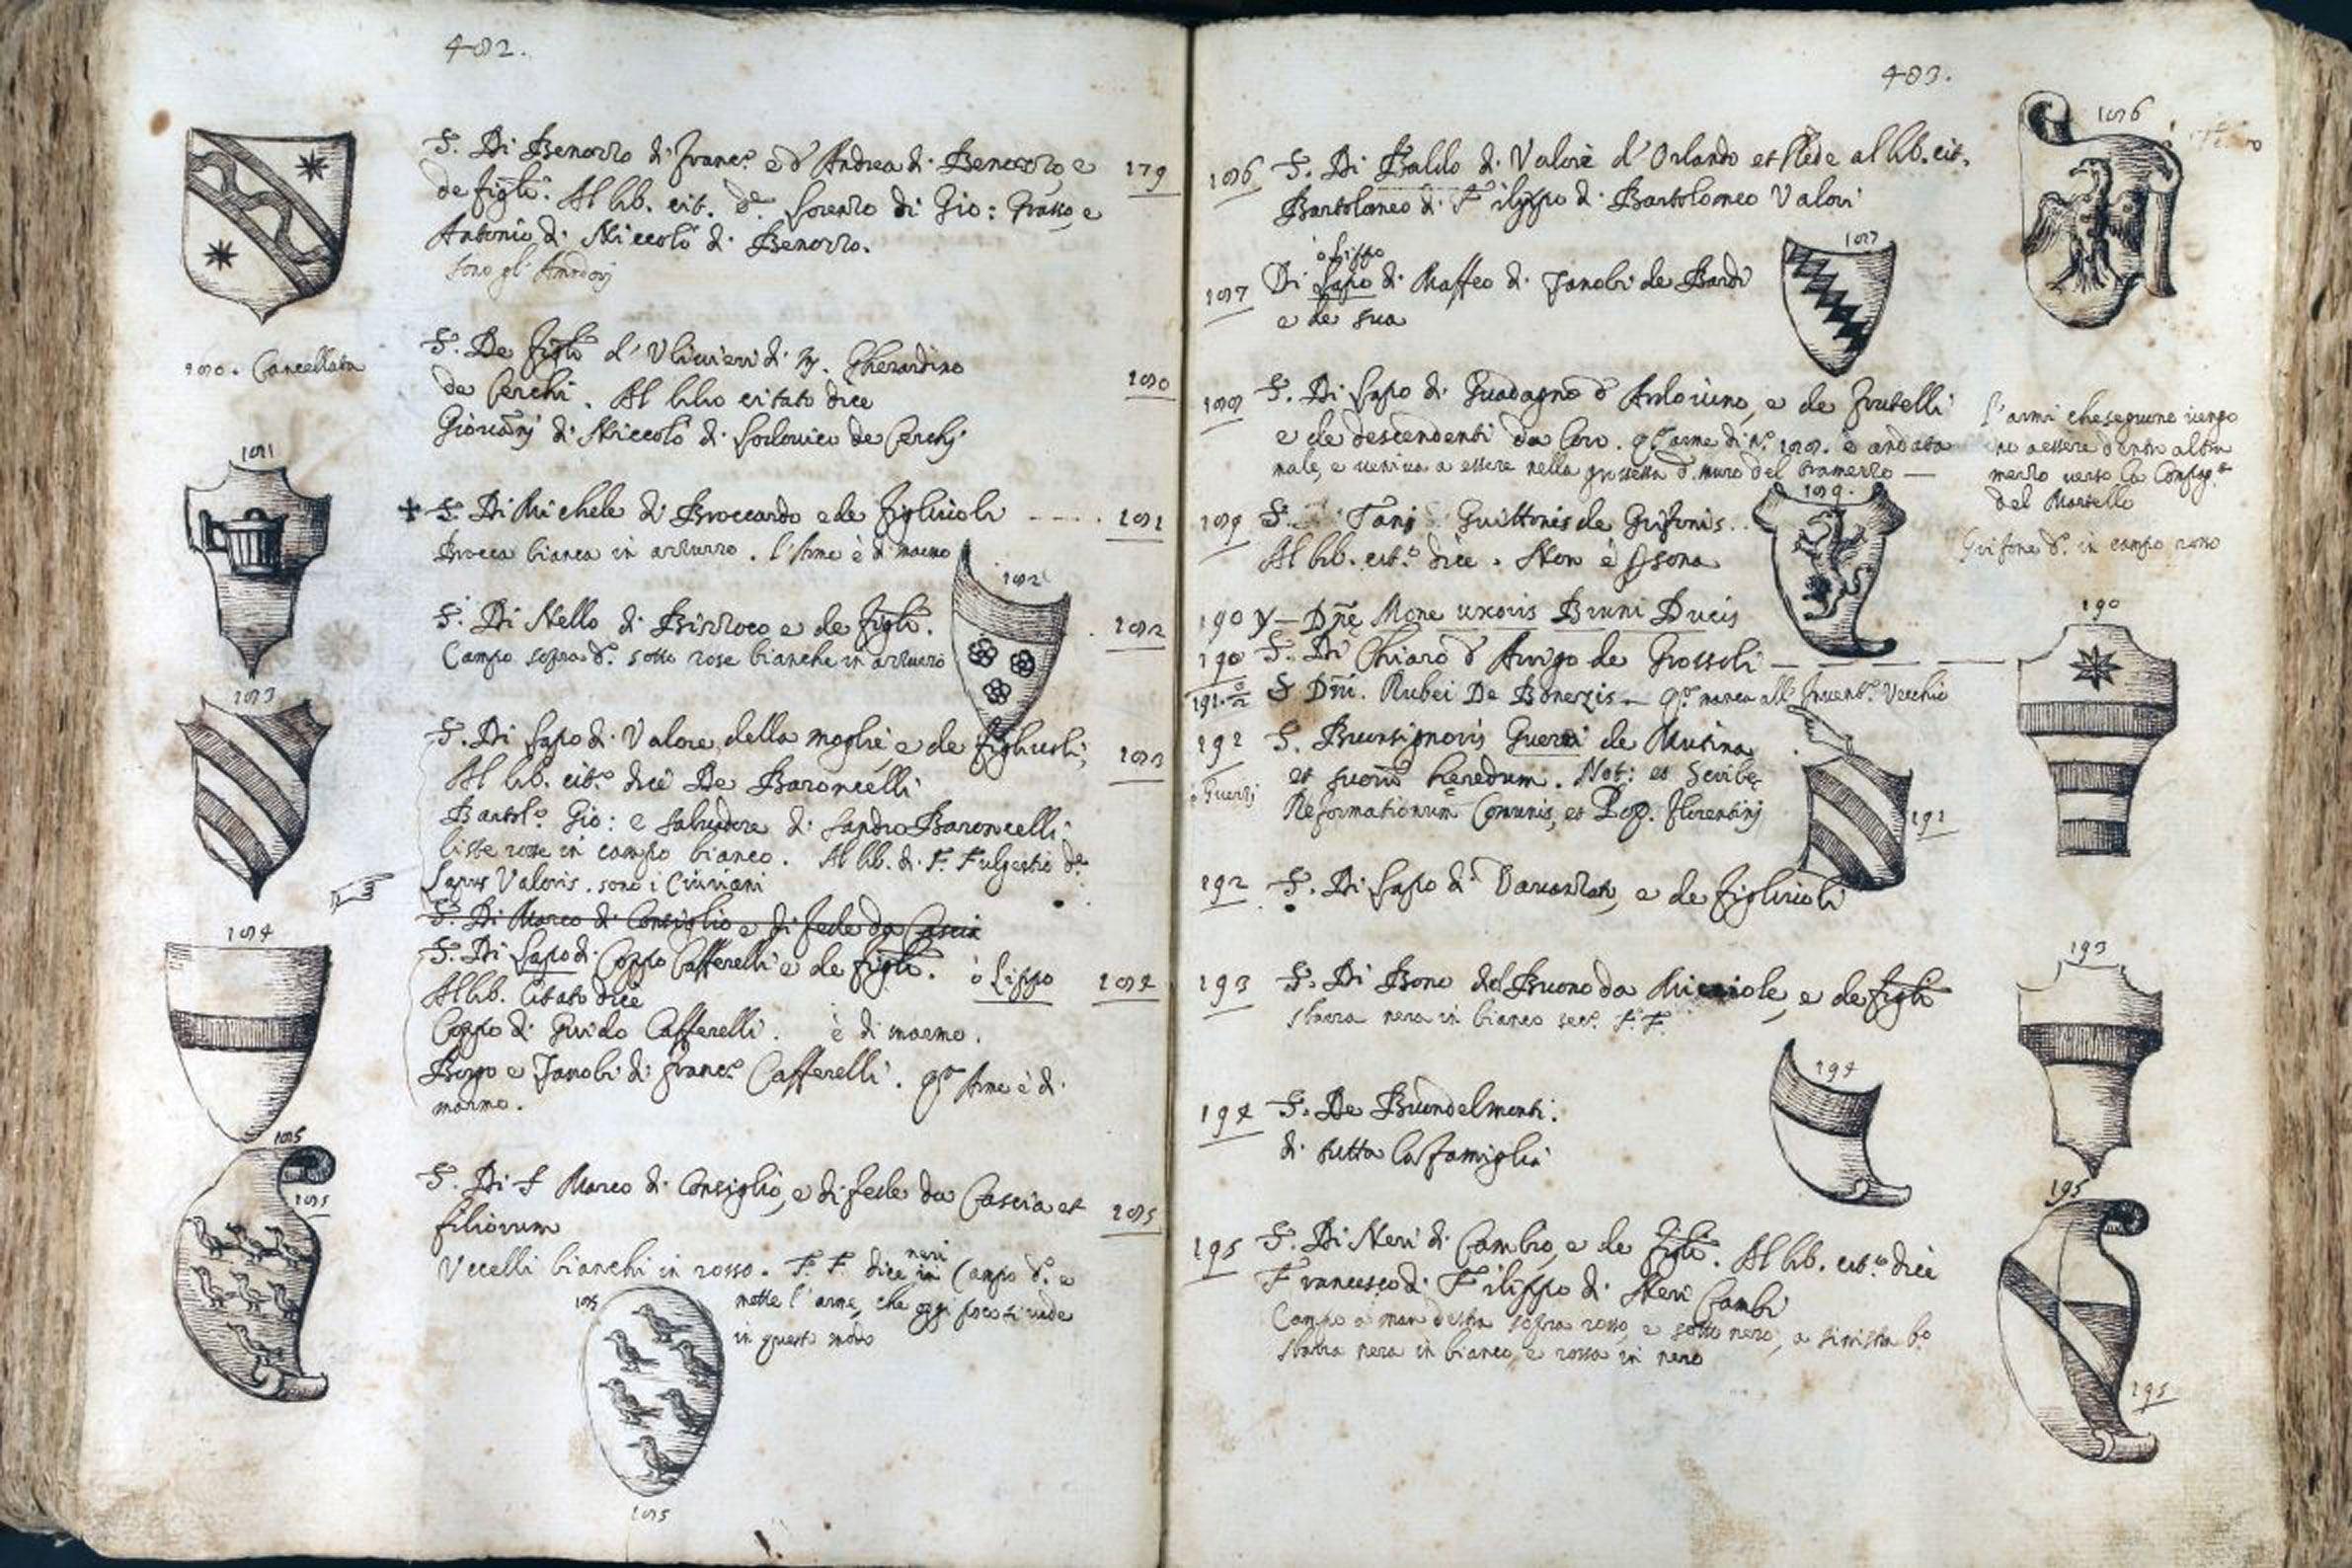 482.
S. Di Benozzo di Franc.º e d'Andrea di Benozzo, e 179
de figli. Al lib. cit. d.º Lorenzo di Gio: Grasso, e
Antonio di Niccolò di Benozzo.
sono gl' Amadori
180. Cancellata
S. De figli d'Ulivieri di M. Gherardino
de Cerchi. Al libro citato dice 180
Giovanni di Niccolò di Lodovico de Cerchj
181
S. Di Michele di Broccardo e de figliuoli 181
Brocca bianca in azzurro. l'Arme è di marmo
182
S. Di Nello di Bizzoco e de figli. 182
Campo sopra d.º sotto rose bianche in azzurro
183
S. Di Lapo di Valore, della moglie, e de figliuoli, 183
Al lib. cit.º dice De Baroncelli
Bartol.º Gio: e Salvadore di Sandro Baroncelli
liste rosse in campo bianco. Al lib. di F. Fulgentio d.º
Lapus Valoris. sono i
S. Di Marco di Consiglio e di fede da Cascia
184
S. Di Lapo di Coppo Cafferelli e de figli. ò Lippo 184
Al lib. Citato dice
Coppo di Guido Cafferelli. è di marmo.
Borgo e Zanobi di Franc.º Cafferelli. q.ª Arme è di
marmo.
185
185
S. Di S Marco di Consiglio, e di fede da Cascia et 185
filiorum
neri
Uccelli bianchi in rosso. F. F. dice in Campo d.º e
185 mette l'arme, che oggi poco si vede
in questo modo
185
483.
186
186 S. Di Baldo di Valore d'Orlando et Rede al lib. cit.
Bartolomeo di Filippo di Bartolomeo Valori
ò Lippo
187
187 Di Lapo di Maffeo di Zanobi de Bardi
e de sua
188 S. Di Lapo di Guadagno d'Ardovino, e de fratelli
e de descendenti da loro. q.ª arme di N.º 188. è andata
male, e veniva a essere nella grossezza d. muro del tramezzo
l'armi che seguono vengo
no a essere d'entro altro
mezzo verso la Compag.ª
del Martello
189
189 S. Zanj Guittonis de Grifonis.
Al lib. cit.º dice. Non è persona
Grifone d.º in campo rosso
190 Y Dnę Mone uxoris Bruni Ducis
190
190 S. Di Chiaro d'Arrigo de Grossoli
191.2 S Dni. Rubei De Bonezis q.º manca all' Invent.º Vecchio
191 S. Buonsignoris Guerzi de Mutina
et suorum heredum. Not: et Scribę
ò Guerzj
Reformationum Comunis, et Pop. florentinj
191
192 S. Di Lapo di Davanzato, e de figliuoli
193
193 S. Di Bono del Buono da e de figli
sbarra nera in bianco sec.º F. F.
194
194 S. De Buondelmonti.
di tutta la famiglia
195
195 S. Di Neri di Cambio, e de figli. Al lib. cit.º dice
Francesco di Filippo di Neri Cambi
Campo a man destra sopra rosso, e sotto nero, a sinistra b.º
sbarra nera in bianco, e rossa in nero
195